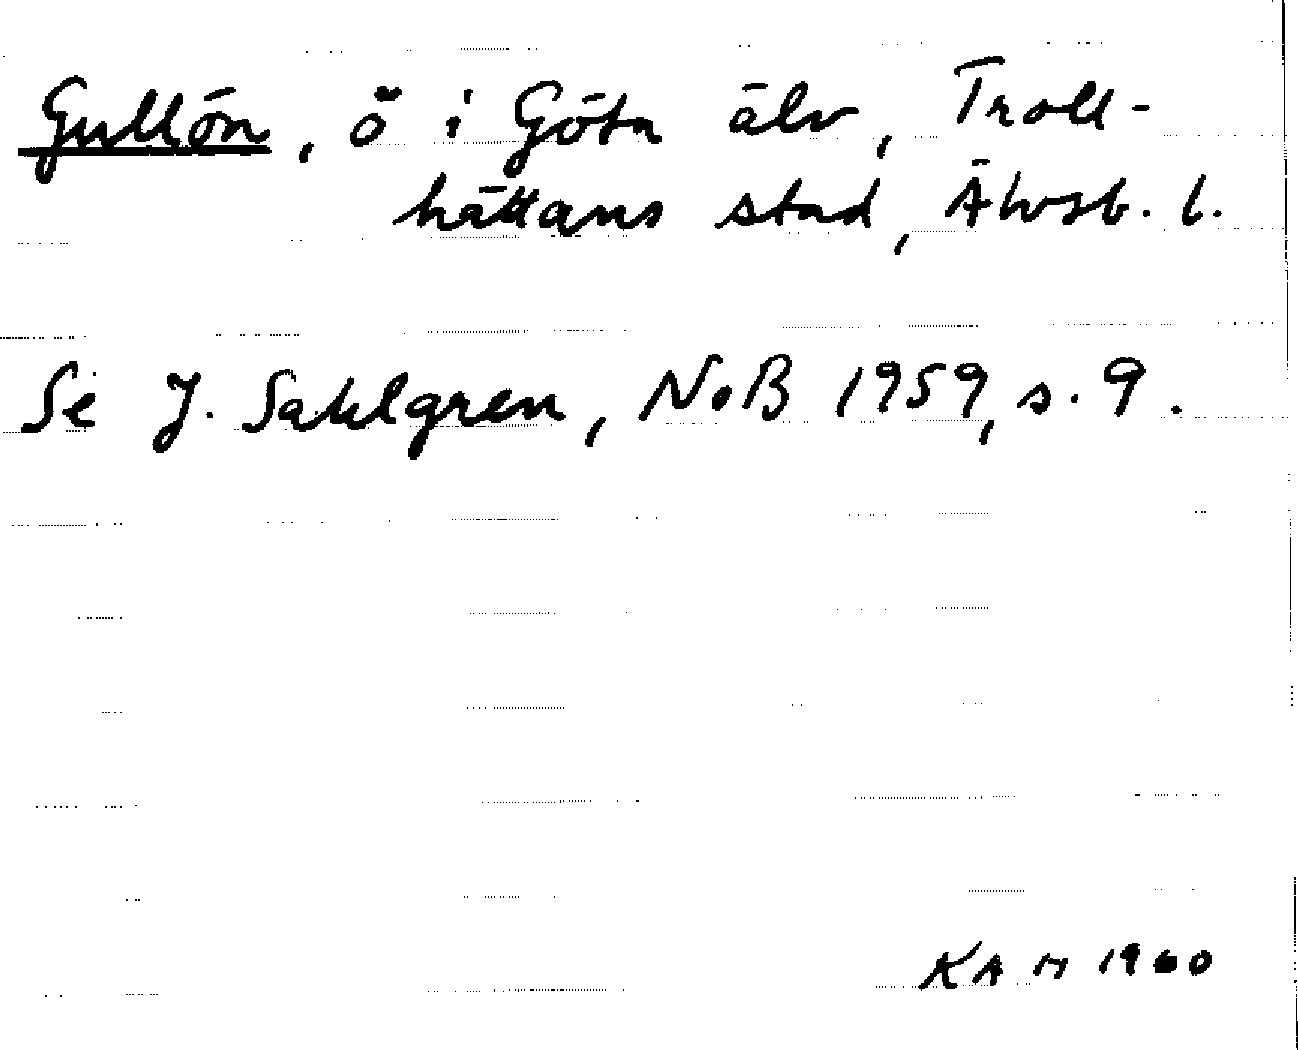 Gullön, ö i Göta älv, Troll-
hättans stad, Älvsb. l.
Se J. Sahlgren, NoB 1959, s. 9.
KAM 1960